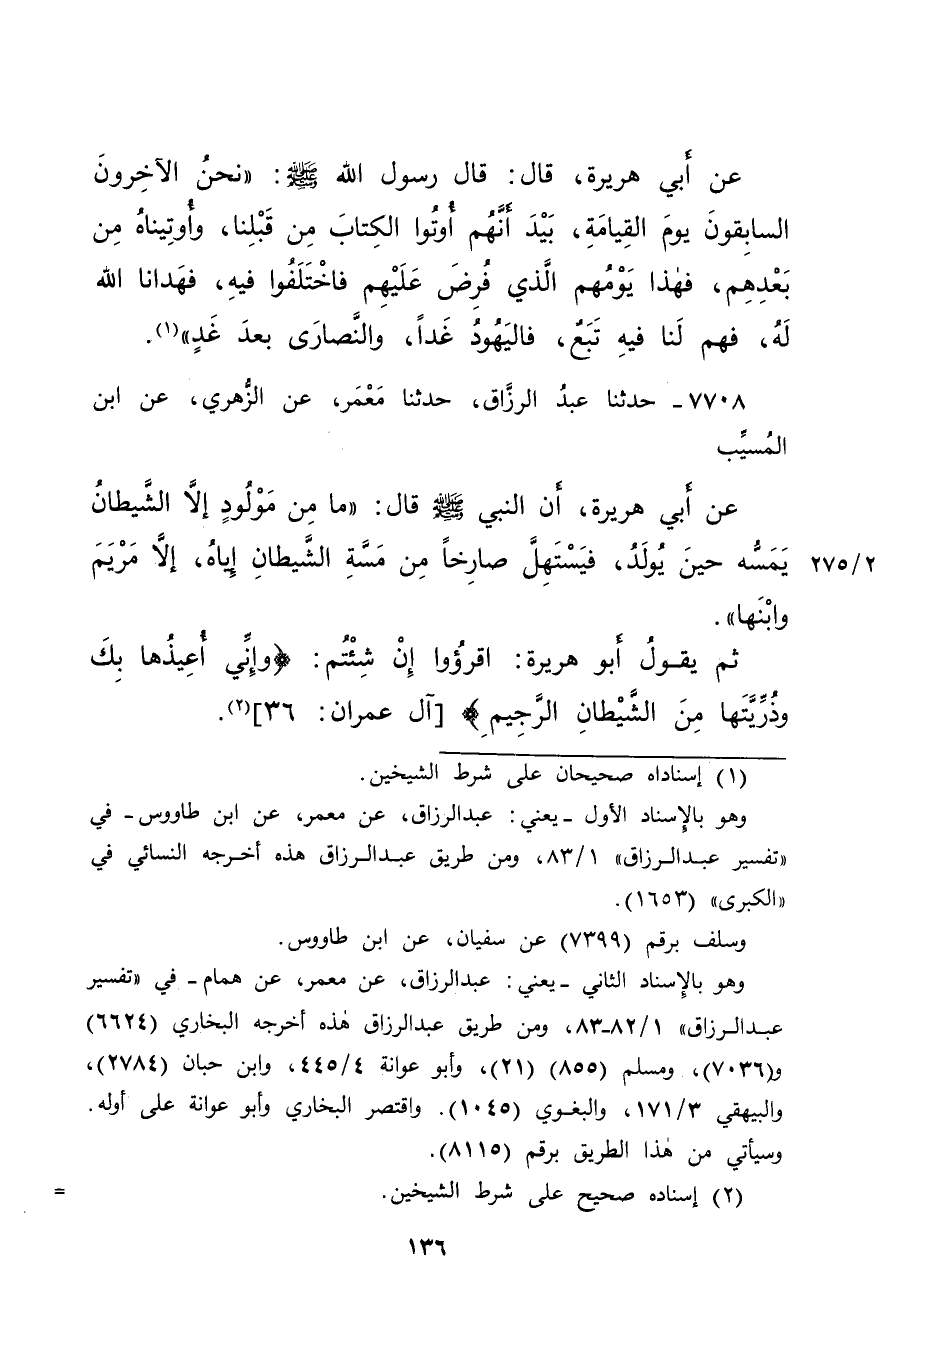 عن أَبي هريرة، قال: قال رسول الله ﷺ: «نحنُ الآخِرونَ
السابِقونَ يومَ القِيامَةِ، بَيْدَ أَنَّهُم أُوتُوا الكِتابَ مِن قَبْلِنا، وأُوتِيناهُ مِن
بَعْدِهِم، فهٰذا يَوْمُهم الَّذي فُرِضَ عَلَيْهِم فاخْتَلَفُوا فيهِ، فهَدانا الله
لَهُ، فهم لَنا فيهِ تَبَعٌ، فاليَهُودُ غَداً، والنَّصارَى بعدَ غَدٍ»(١).
٧٧٠٨ـ حدثنا عبدُ الرزَّاق، حدثنا مَعْمَر، عن الزُّهري، عن ابن
المُسيِّب
عن أَبي هريرة، أَن النبي ﷺ قال: «ما مِن مَوْلُودٍ إلَّا الشَّيطانُ
يَمَسُّه حينَ يُولَدُ، فيَسْتَهِلُّ صارِخاً مِن مَسَّةِ الشَّيطانِ إِياهُ، إلَّا مَرْيَمَ ٢٧٥/٢
وابْنَها».
ثم يقولُ أَبو هريرة: اقرؤُوا إنْ شِئْتُم: ﴿وإِنِّي أُعِيذُها بِكَ
وذُرِّيَّتَها مِنَ الشَّيْطانِ الرَّجِيمِ﴾ [آل عمران: ٣٦](٢).
(١) إسناداه صحيحان على شرط الشيخين.
وهو بالإسناد الأول ـ يعني: عبدالرزاق، عن معمر، عن ابن طاووس ـ في
«تفسير عبدالرزاق» ٨٣/١، ومن طريق عبدالرزاق هذه أخرجه النسائي في
«الكبرى» (١٦٥٣).
وسلف برقم (٧٣٩٩) عن سفيان، عن ابن طاووس.
وهو بالإسناد الثاني ـ يعني: عبدالرزاق، عن معمر، عن همام ـ في «تفسير
عبدالرزاق» ٨٢/١-٨٣، ومن طريق عبدالرزاق هٰذه أخرجه البخاري (٦٦٢٤)
و(٧٠٣٦)، ومسلم (٨٥٥) (٢١)، وأبو عوانة ٤٤٥/٤، وابن حبان (٢٧٨٤)،
والبيهقي ١٧١/٣، والبغوي (١٠٤٥). واقتصر البخاري وأبو عوانة على أوله.
وسيأتي من هٰذا الطريق برقم (٨١١٥).
(٢) إسناده صحيح على شرط الشيخين. =
١٣٦